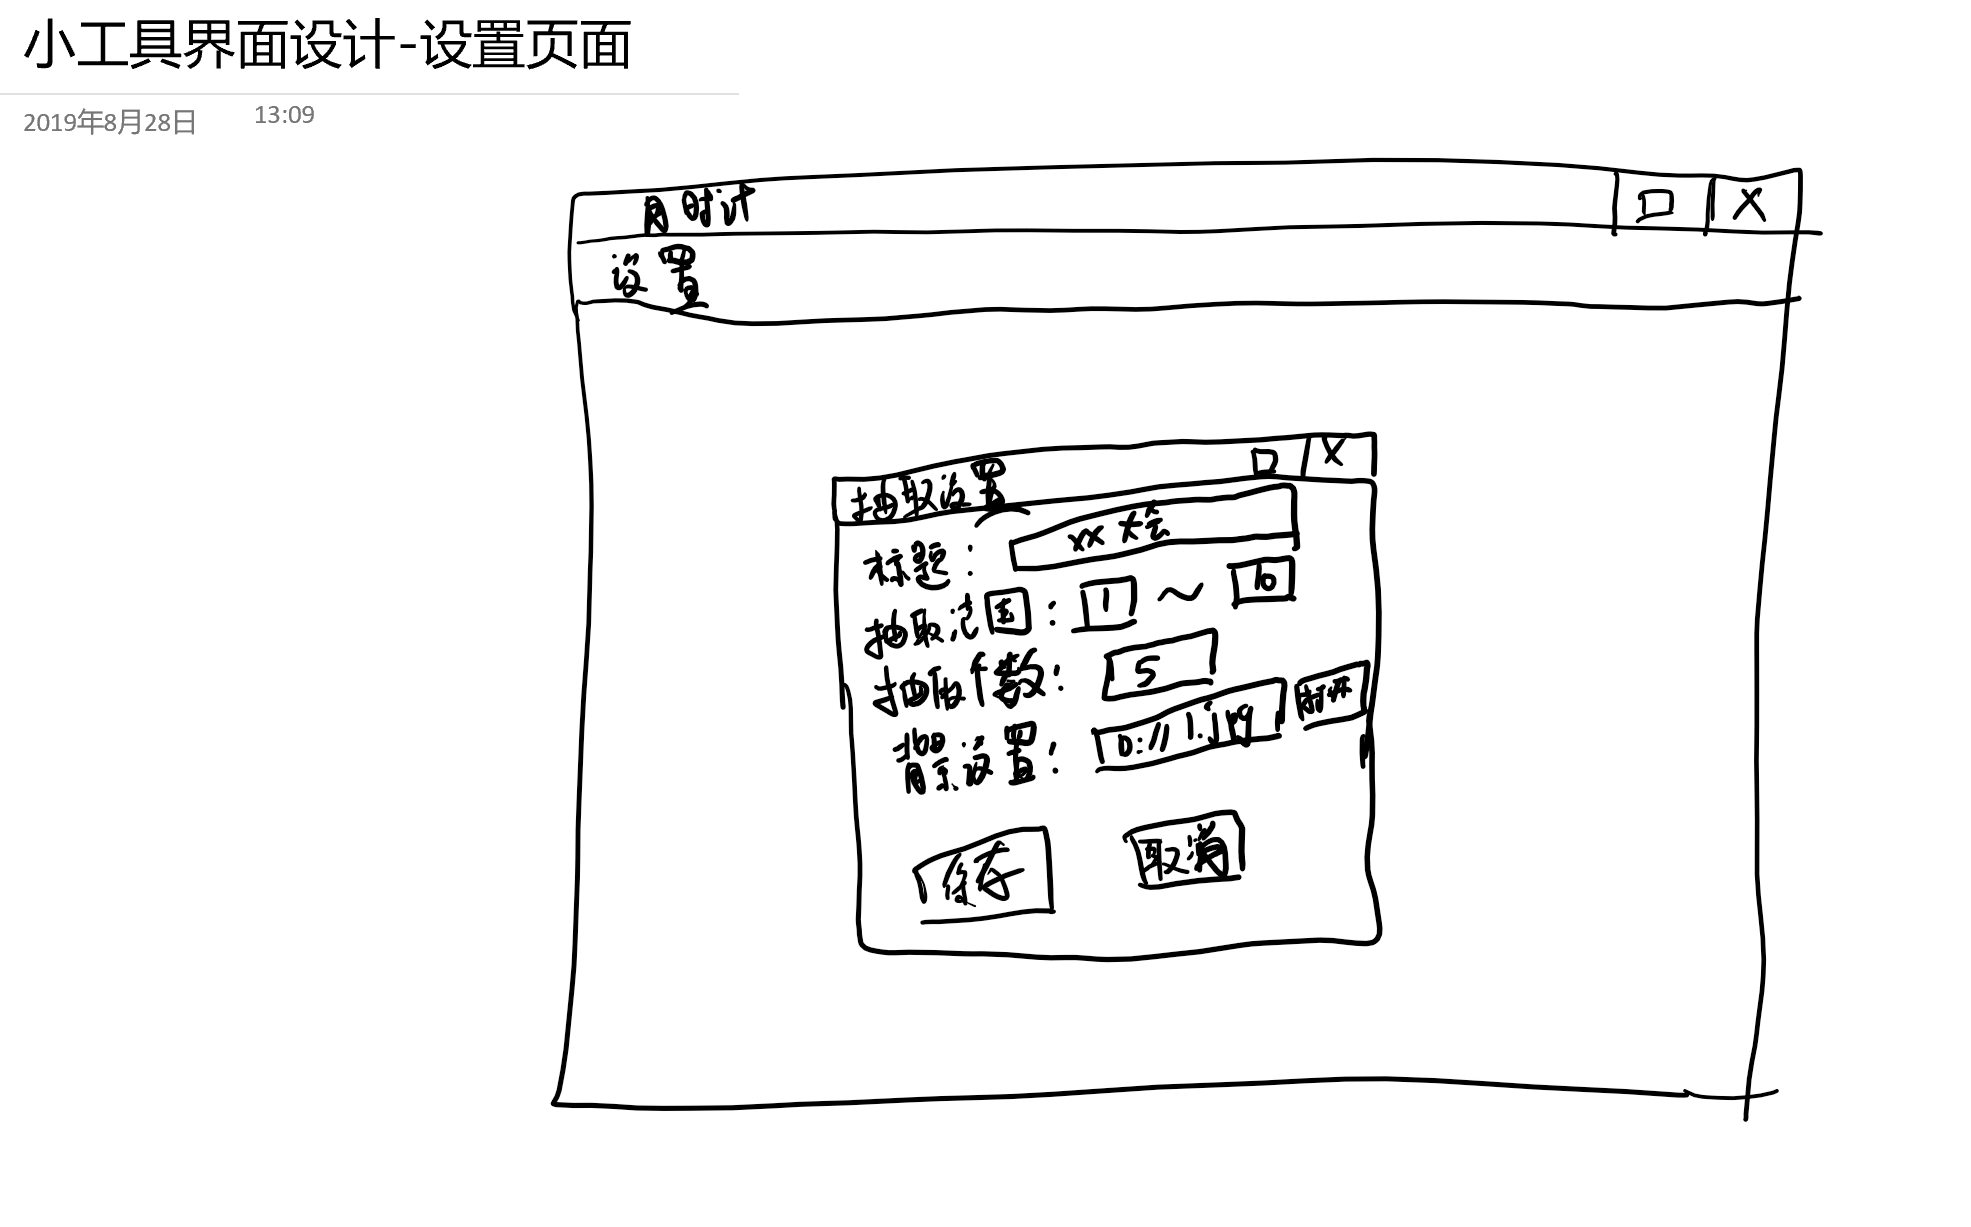 小工具界面设计-设置页面
2019年8月28日 13:09
时计
设置
抽取设置
标题： xx 大会
抽取范围： 1 ~ 10
抽取个数： 5
背景设置： D:// 1.jpg 打开
保存 取消